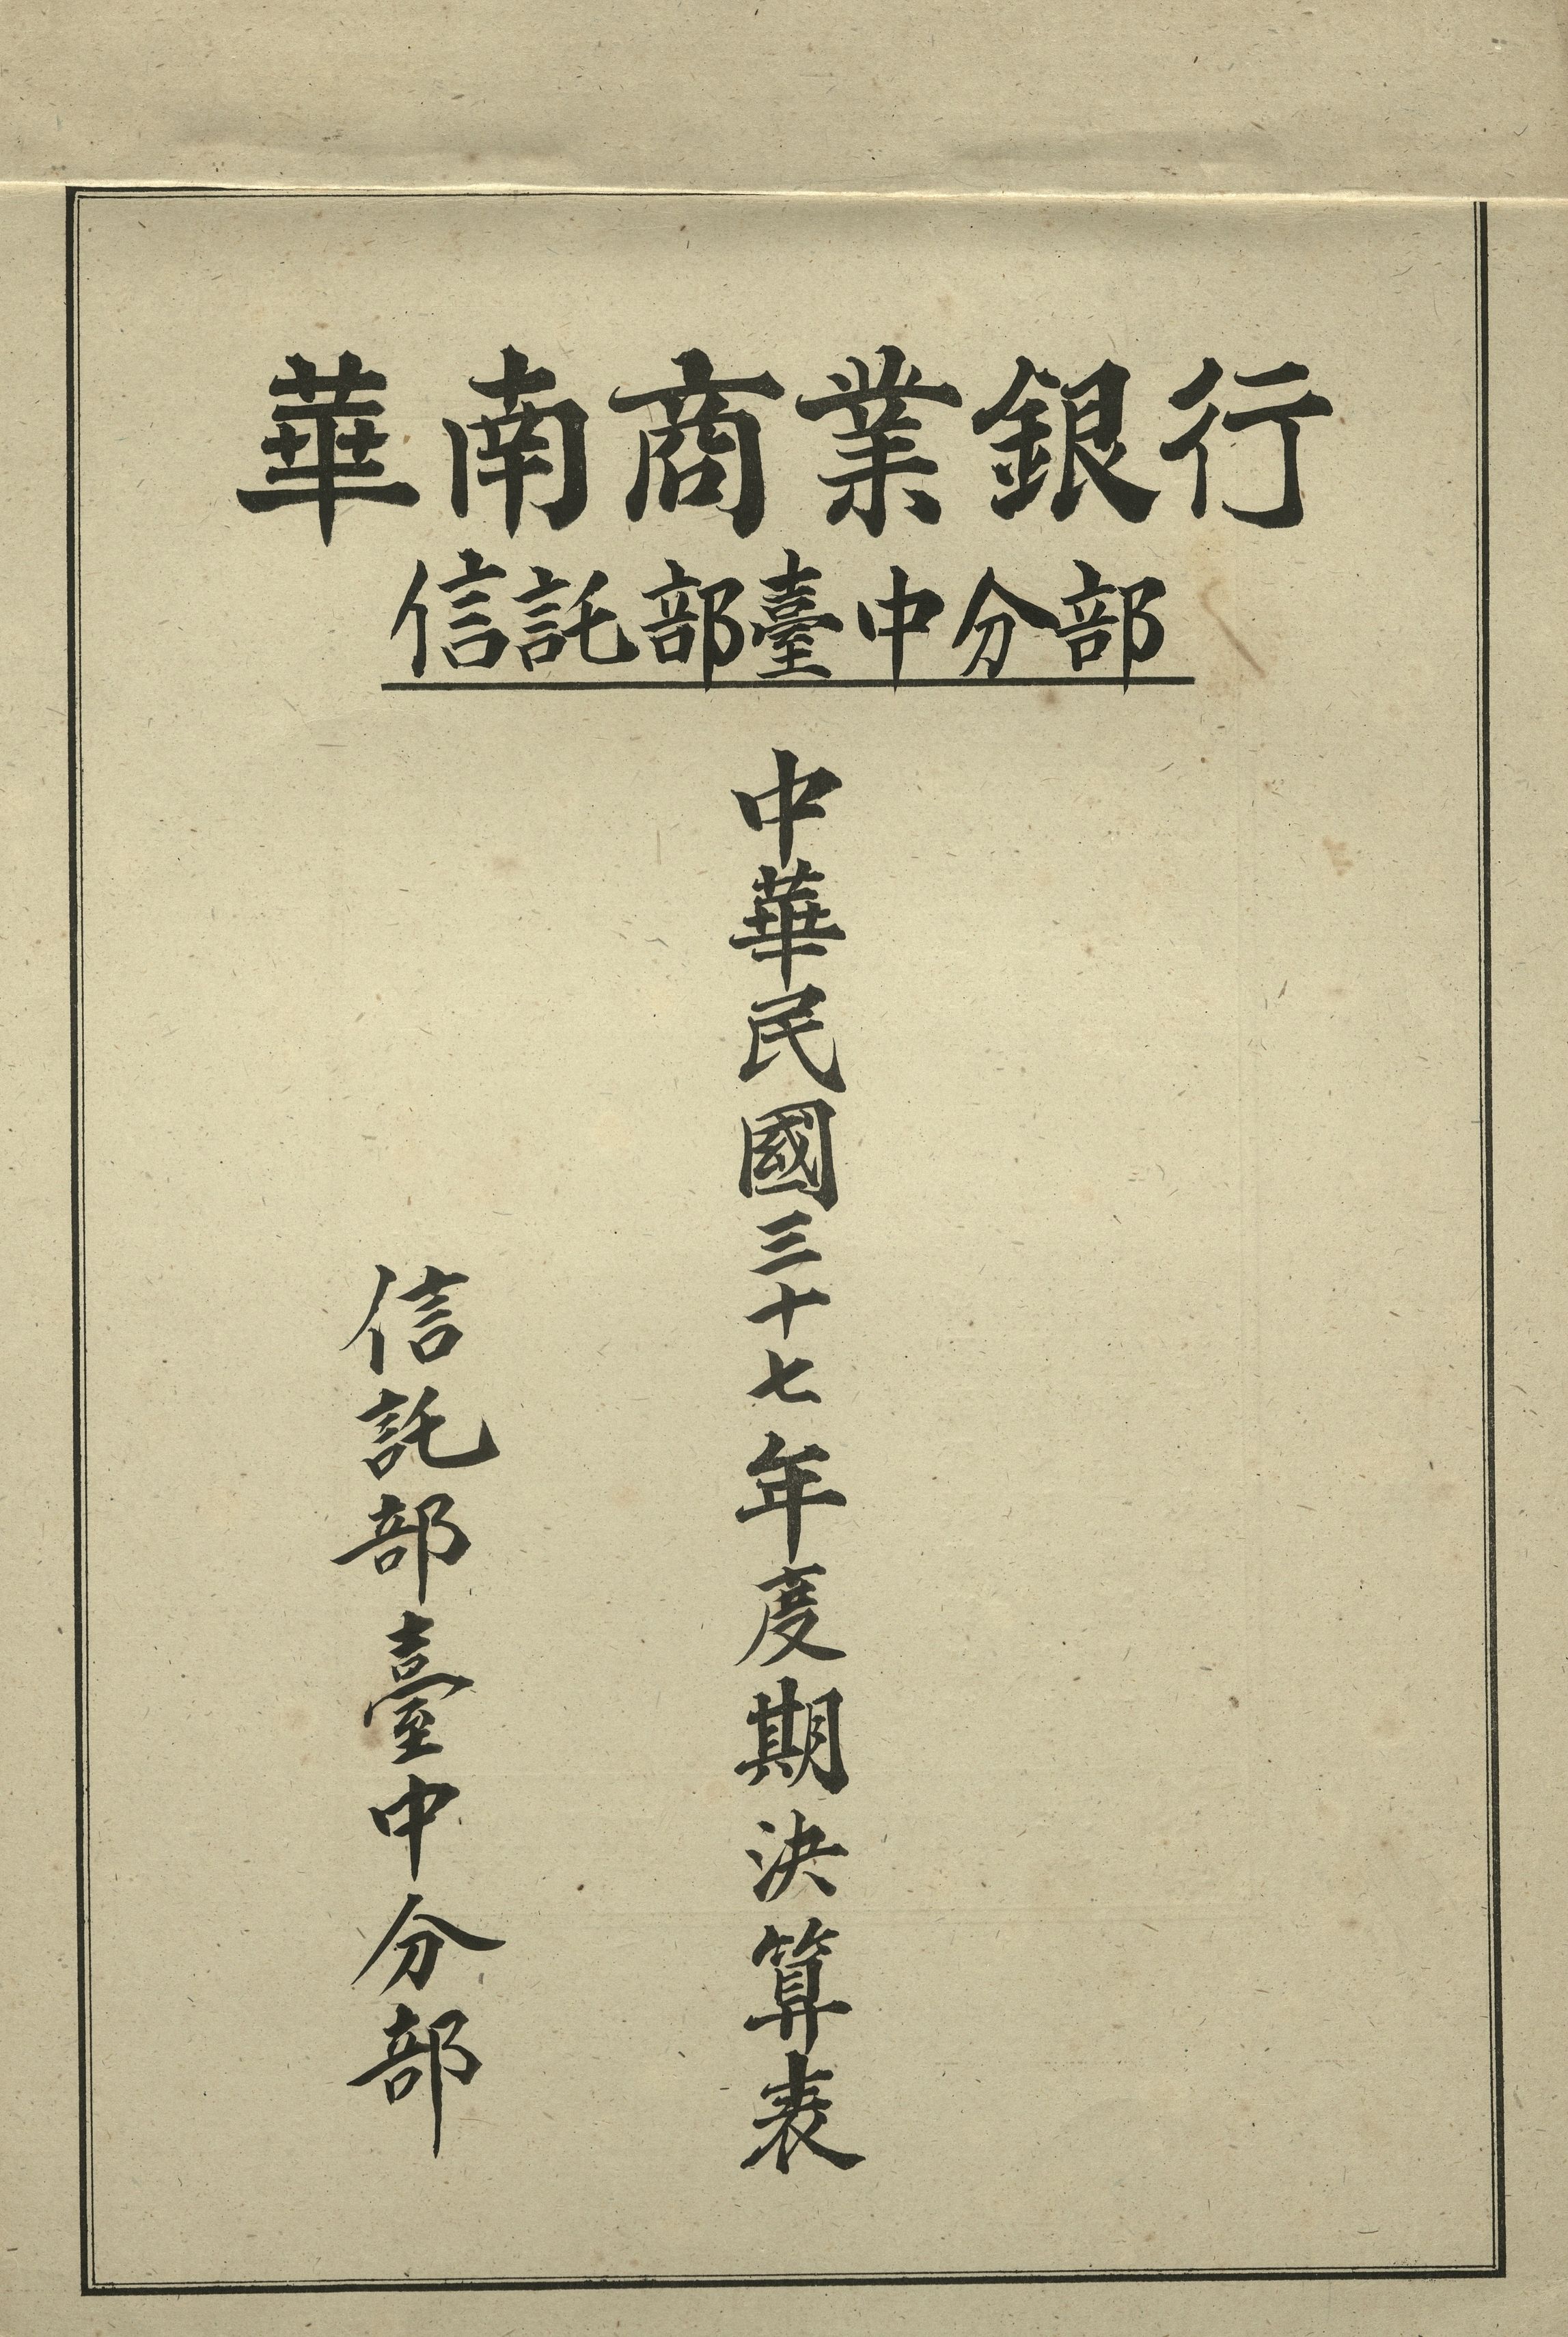 華南商業銀行
信託部臺中分部
中華民國三十七年度期決算表
信託部臺中分部